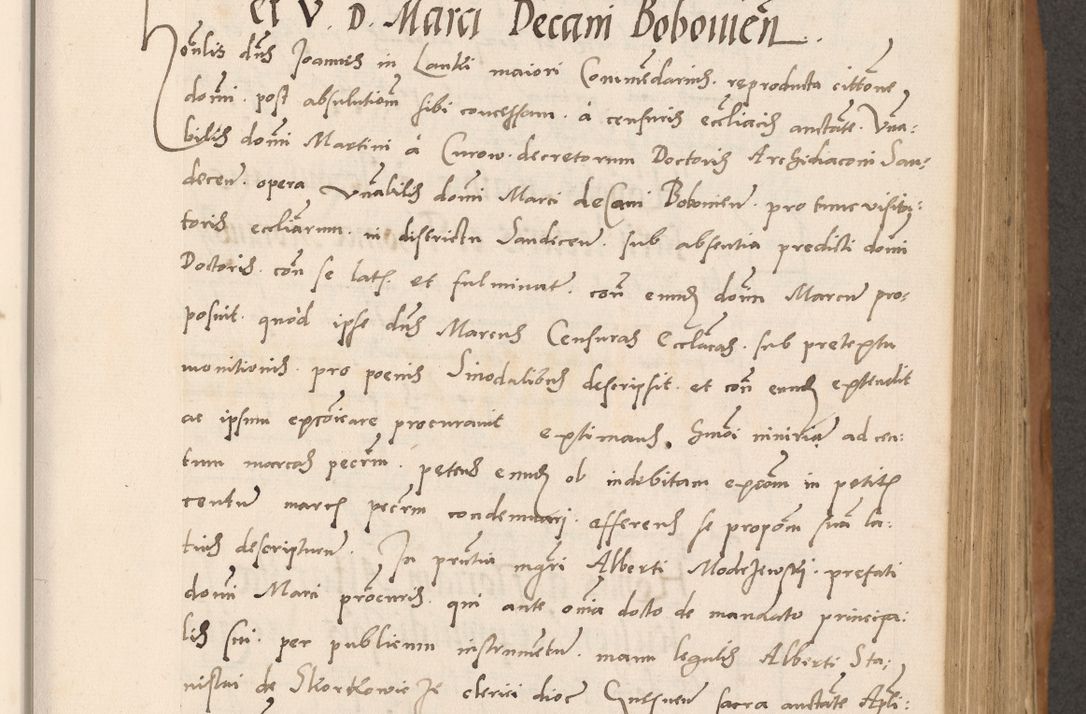 et V. D. Marci Decani Bobowien̄.
dn̄s Joannes in Lanki maiori Com̄endarius. reproducta citt̄one
domi. post absolutiom̄ sibi concessam. à censuris ecc̄liacis auctāte. Vn̄a:
bilis domī Martini à Curow. decretorum Doctoris Archidiaconi San:
decen̄. opera Vn̄abilis domī Marci deCani Bobowien̄. pro tunc visita:
toris eccl̄iarum. in districtu Sandecen̄. sub absentia predicti domī
Doctoris. con̄ se lat. et fulminat. con̄ eund domn̄ Marcū pro:
posuit. quòd ipse dn̄s Marcus Censuras Eccl̄iacas. sub pretextu
monitionis. pro poenis Sinodalibus descripsit. et con̄ eund extendit
ac ipsum excōicare procurauit extimans. Hmōi iniuriā ad cen:
tum marcas pecūn. petens eund ob indebitam excōm in petitis
centū marcis pecūn condemnari. offerens se propon̄ suā la:
tius descripturū. In prn̄tia mgr̄i Alberti Modrzewski. prefati
domī Marci procuris. qui ante om̄ia docto de mandato principa:
lis sui. per publicum instrumentū. manu legalis Alberti Sta:
nislai de Skorkowicze clerici dioc Gnesnen̄ sacra auctāte Apli: